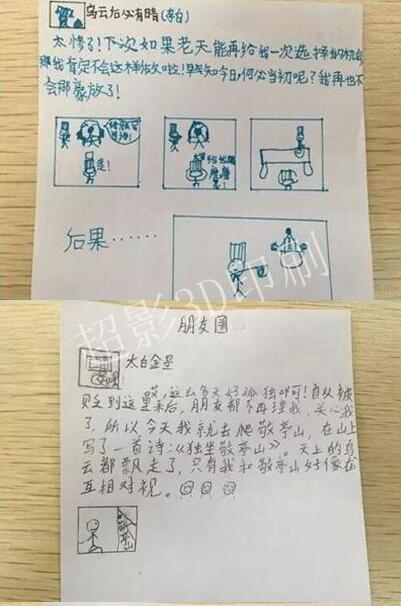 乌云后必有晴(李白)
太惨了!下次如果老天能再给我一次选择的机会
我肯定不会这样做啦!早知今日,何必当初呢?我再也不
会那豪放了!
给我写
首诗!
是!
后果……
超影3D印刷
朋友圈
太白金星
哎,这么多天好孤独呀!自从被
贬到这里来后,朋友都不再理我,关心我
了,所以今天我就去爬敬亭山,在山上
写了一首诗:《独坐敬亭山》。天上的鸟
云都飘走了,只有我和敬亭山好像在
互相对视。
敬亭山